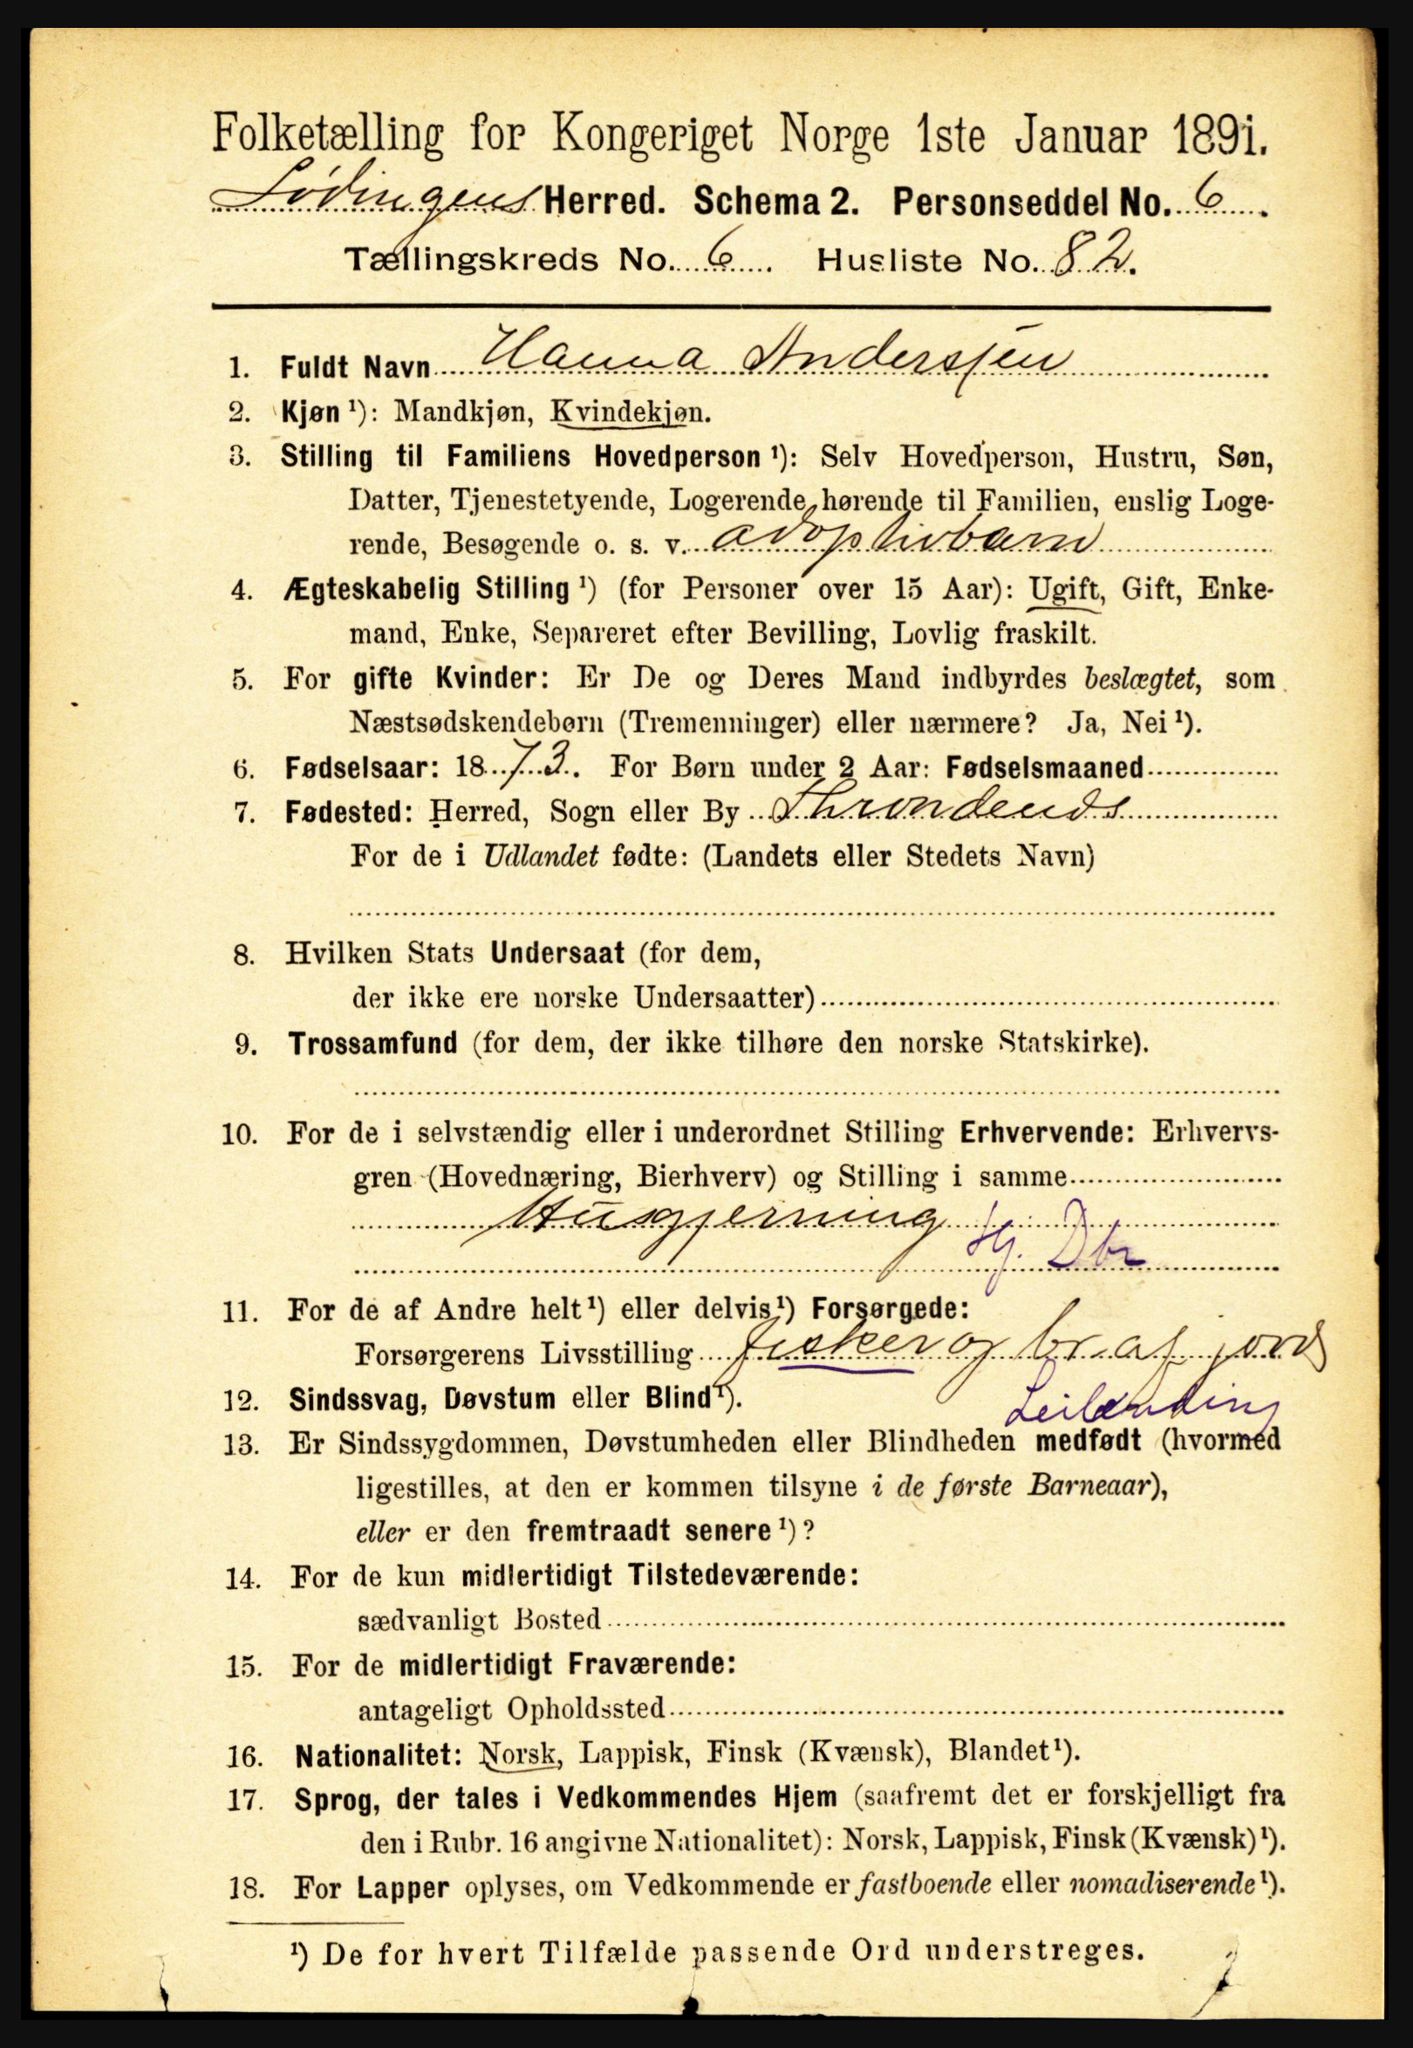 Folketælling for Kongeriget Norge 1ste Januar 1891.
Lødingens Herred. Schema 2. Personseddel No. 6.
Tællingskreds No. 6. Husliste No. 82.
1. Fuldt Navn Hanna Andersjen
2. Kjøn ¹): Mandkjøn, Kvindekjøn.
3. Stilling til Familiens Hovedperson ¹): Selv Hovedperson, Hustru, Søn,
Datter, Tjenestetyende, Logerende hørende til Familien, enslig Loge-
rende, Besøgende o. s. v. adoptivbarn
4. Ægteskabelig Stilling ¹) (for Personer over 15 Aar): Ugift, Gift, Enke-
mand, Enke, Separeret efter Bevilling, Lovlig fraskilt.
5. For gifte Kvinder: Er De og Deres Mand indbyrdes beslægtet, som
Næstsødskendebørn (Tremenninger) eller nærmere? Ja, Nei ¹).
6. Fødselsaar: 1873. For Børn under 2 Aar: Fødselsmaaned
7. Fødested: Herred, Sogn eller By Throndends
For de i Udlandet fødte: (Landets eller Stedets Navn)
8. Hvilken Stats Undersaat (for dem,
der ikke ere norske Undersaatter)
9. Trossamfund (for dem, der ikke tilhøre den norske Statskirke).
10. For de i selvstændig eller i underordnet Stilling Erhvervende: Erhvervs-
gren (Hovednæring, Bierhverv) og Stilling i samme
Husgjerning
Hj. Dbr
11. For de af Andre helt ¹) eller delvis ¹) Forsørgede:
Forsørgerens Livsstilling fisker og br af jord
12. Sindssvag, Døvstum eller Blind ¹).
Leilending
13. Er Sindssygdommen, Døvstumheden eller Blindheden medfødt (hvormed
ligestilles, at den er kommen tilsyne i de første Barneaar),
eller er den fremtraadt senere ¹)?
14. For de kun midlertidigt Tilstedeværende:
sædvanligt Bosted
15. For de midlertidigt Fraværende:
antageligt Opholdssted
16. Nationalitet: Norsk, Lappisk, Finsk (Kvænsk), Blandet ¹).
17. Sprog, der tales i Vedkommendes Hjem (saafremt det er forskjelligt fra
den i Rubr. 16 angivne Nationalitet): Norsk, Lappisk, Finsk (Kvænsk) ¹).
18. For Lapper oplyses, om Vedkommende er fastboende eller nomadiserende ¹).
¹) De for hvert Tilfælde passende Ord understreges.